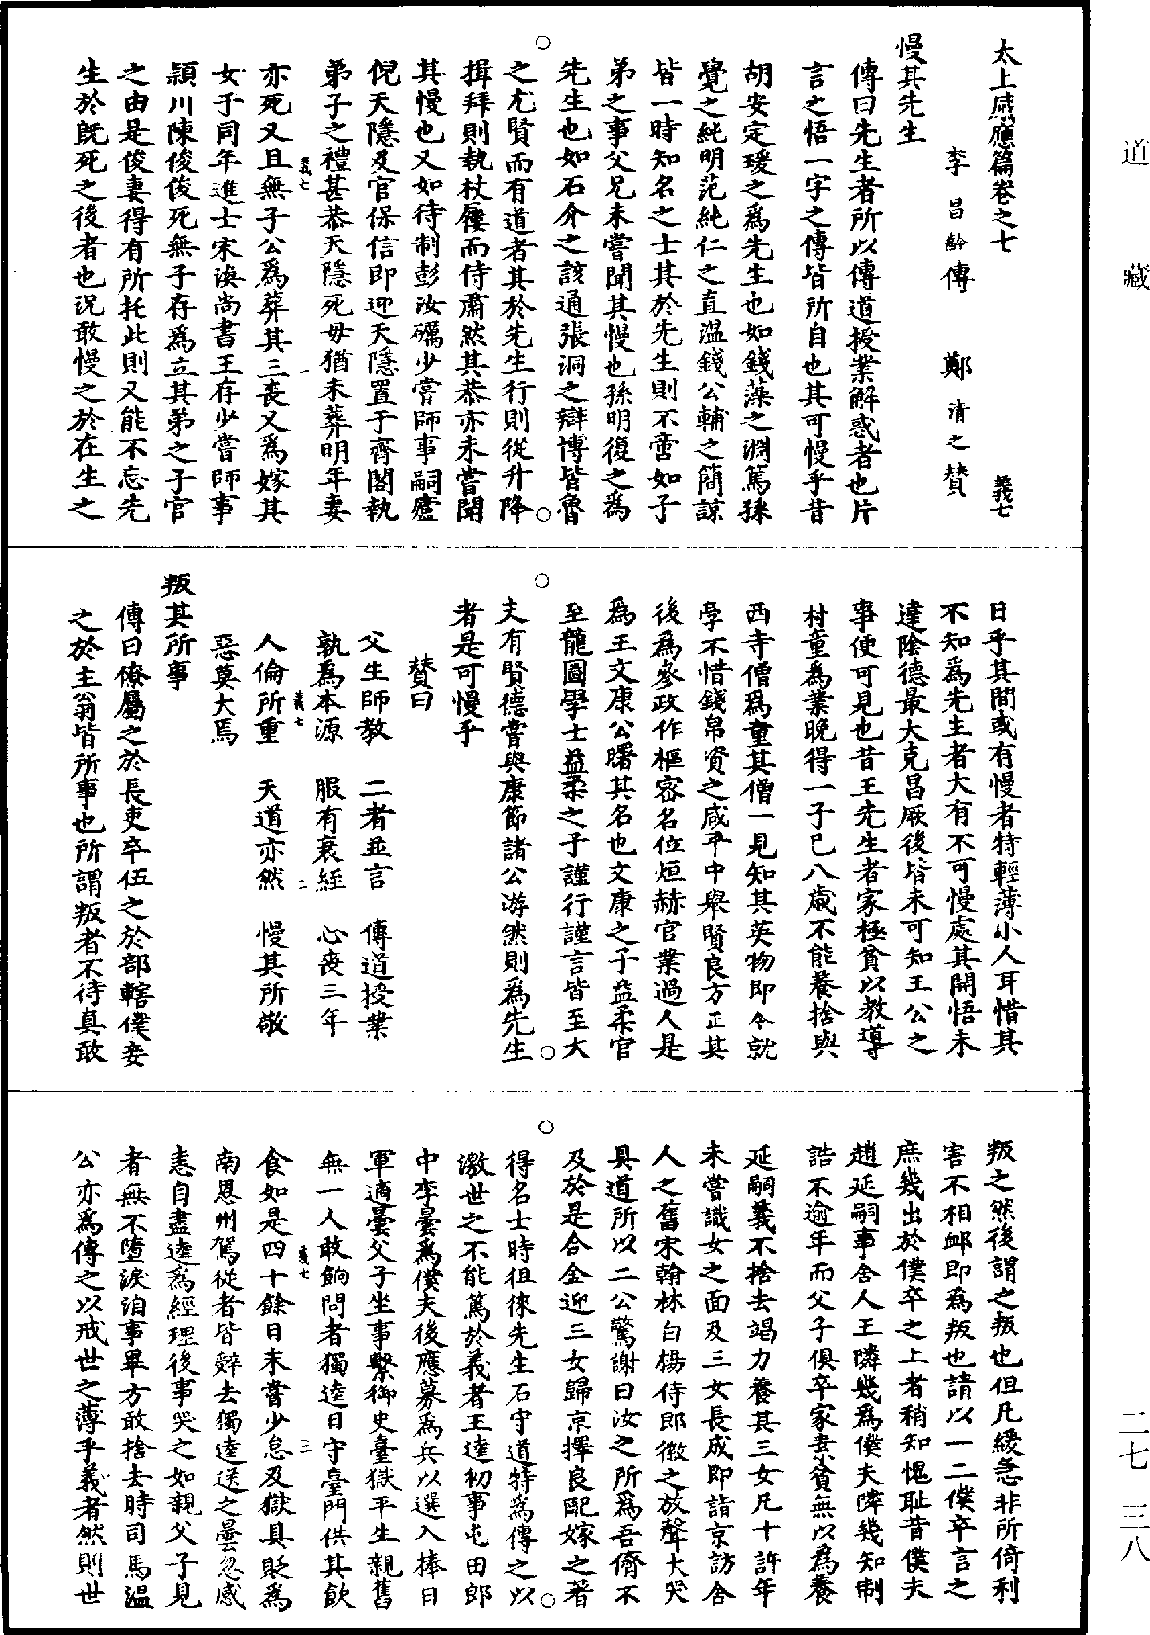 道藏
二七 三八
太上感應篇卷之七 義七
李昌齡傳 鄭清之贊
慢其先生
傳曰先生者所以傳道授業解惑者也片
言之悟一字之傳皆所自也其可慢乎昔
胡安定瑗之爲先生也如錢藻之淵篤孫
覺之純明范純仁之直溫錢公輔之簡諒
皆一時知名之士其於先生則不啻如子
弟之事父兄未嘗聞其慢也孫明復之爲
先生也如石介之該通張洞之辯博皆魯
之尤賢而有道者其於先生行則從升降
揖拜則執杖屨而侍肅然其恭亦未嘗聞
其慢也又如待制彭汝礪少嘗師事嗣廬
倪天隱及官保信即迎天隱置于齊閣執
弟子之禮甚恭天隱死母猶未葬明年妻
義七 一
亦死又且無子公爲葬其三喪又爲嫁其
女子同年進士宋渙尚書王存少嘗師事
潁川陳俊俊死無子存爲立其弟之子官
之由是俊妻得有所托此則又能不忘先
生於既死之後者也況敢慢之於在生之
日乎其間或有慢者特輕薄小人耳惜其
不知爲先生者大有不可慢處其開悟未
達陰德最大克昌厥後皆未可知王公之
事便可見也昔王先生者家極貧以教導
村童爲業晚得一子已八歲不能養捨與
西寺僧爲童其僧一見知其英物即令就
學不惜錢帛資之咸平中舉賢良方正其
後爲參政作樞密名位烜赫官業過人是
爲王文康公曙其名也文康之子益柔官
至龍圖學士益柔之子謹行謹言皆至大
夫有賢德嘗與康節諸公游然則爲先生
者是可慢乎
贊曰
父生師教 二者並言 傳道授業
孰爲本源 服有衰絰 心喪三年
義七 二
人倫所重 天道亦然 慢其所敬
惡莫大焉
叛其所事
傳曰僚屬之於長吏卒伍之於部轄僕妾
之於主翁皆所事也所謂叛者不待真敢
叛之然後謂之叛也但凡緩急非所倚利
害不相卹即爲叛也請以一二僕卒言之
庶幾出於僕卒之上者稍知愧耻昔僕夫
趙延嗣事舍人王隣幾爲僕夫隣幾知制
誥不逾年而父子俱卒家素貧無以爲養
延嗣義不捨去竭力養其三女凡十許年
未嘗識女之面及三女長成即詣京訪舍
人之舊宋翰林白楊侍郎徽之放聲大哭
具道所以二公驚謝曰汝之所爲吾儕不
及於是合金迎三女歸京擇良配嫁之者
得名士時徂徠先生石守道特爲傳之以
激世之不能篤於義者王逵初事屯田郎
中李曇爲僕夫後應募爲兵以選入捧日
軍適曇父子坐事繫御史臺獄平生親舊
無一人敢餉問者獨逵日守臺門供其飲
義七 三
食如是四十餘日未嘗少怠及獄具貶爲
南恩州駕從者皆辭去獨逵送之曇忽感
恚自盡逵爲經理後事哭之如親父子見
者無不墮淚洎事畢方敢捨去時司馬溫
公亦爲傳之以戒世之薄乎義者然則世